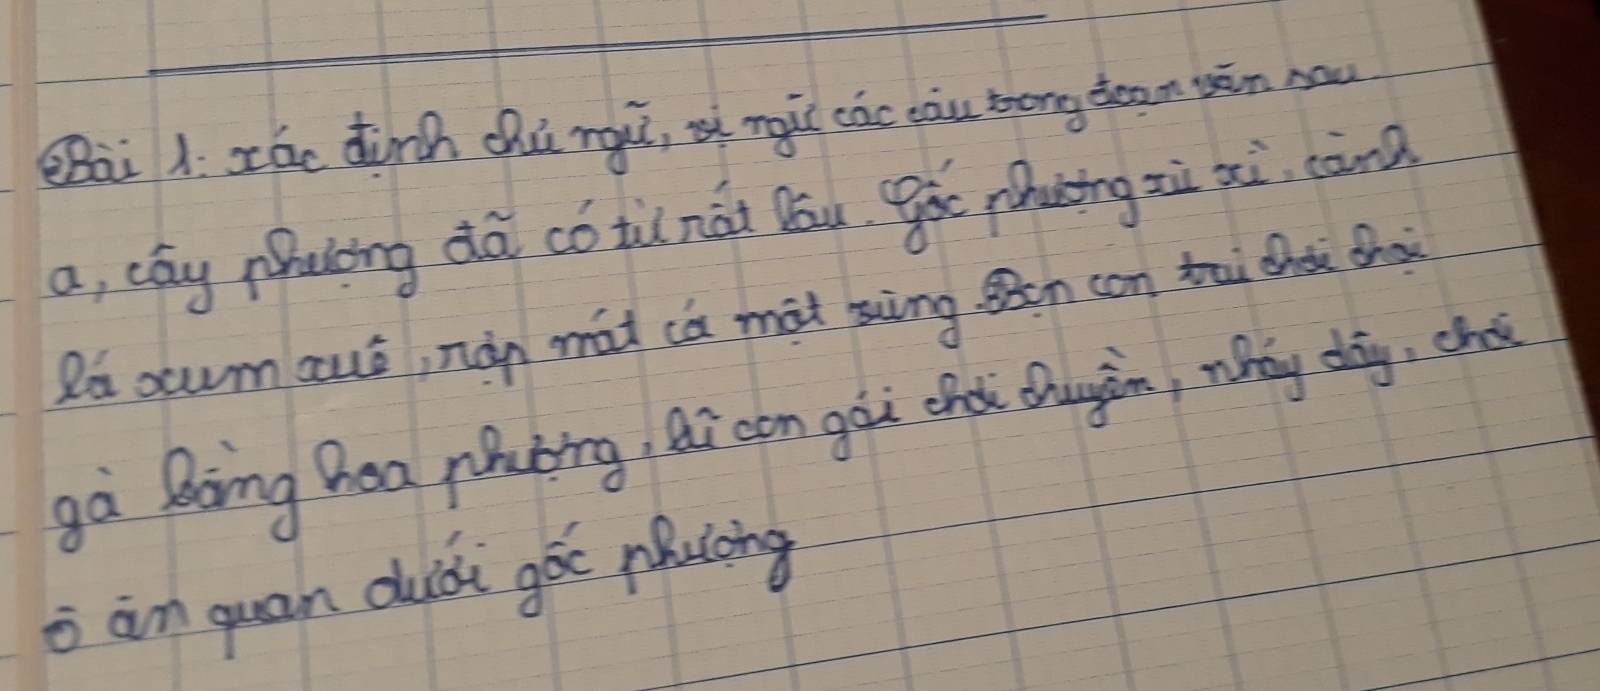 Bài 1: xác định chủ ngữ, vị ngữ các câu trong đoạn văn sau
a, cây phượng đã có từ rất lâu. Gốc phượng xù xì, cành
lá xum xuê, rợp mát cả một vùng. Bọn con trai chơi chọi
gà bằng hoa phượng, lũ con gái chơi chuyền, nhảy dây, chơi
ô ăn quan dưới gốc phượng